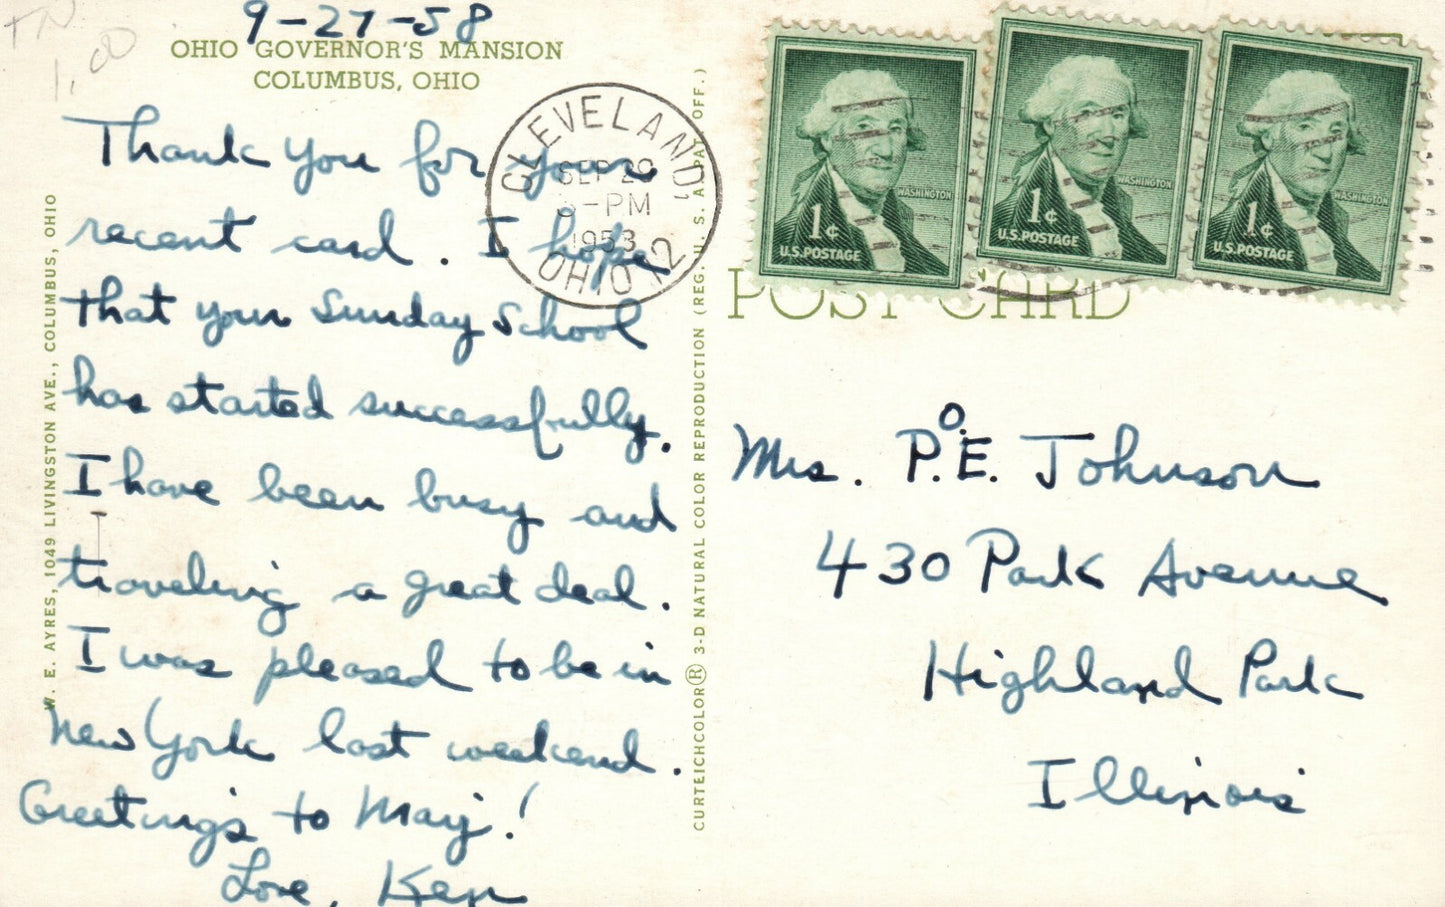 TN
1.00
9-27-58
OHIO GOVERNOR'S MANSION
COLUMBUS, OHIO
Thank you for your
recent card. I hope
that your Sunday School
has started successfully.
I have been busy and
traveling a great deal.
I was pleased to be in
New York last weekend.
Greetings to Marj!
Love, Ken
W. E. AYRES, 1049 LIVINGSTON AVE., COLUMBUS, OHIO
CLEVELAND,
SEP 29
PM
OHIO 12
CURTEICHCOLOR® 3-D NATURAL COLOR REPRODUCTION (REG. U. S. A. PAT. OFF.)
WASHINGTON
1¢
U.S.POSTAGE
WASHINGTON
1¢
U.S.POSTAGE
WASHINGTON
1¢
U.S.POSTAGE
POST CARD
Mrs. P.O.E. Johnson
430 Park Avenue
Highland Park
Illinois